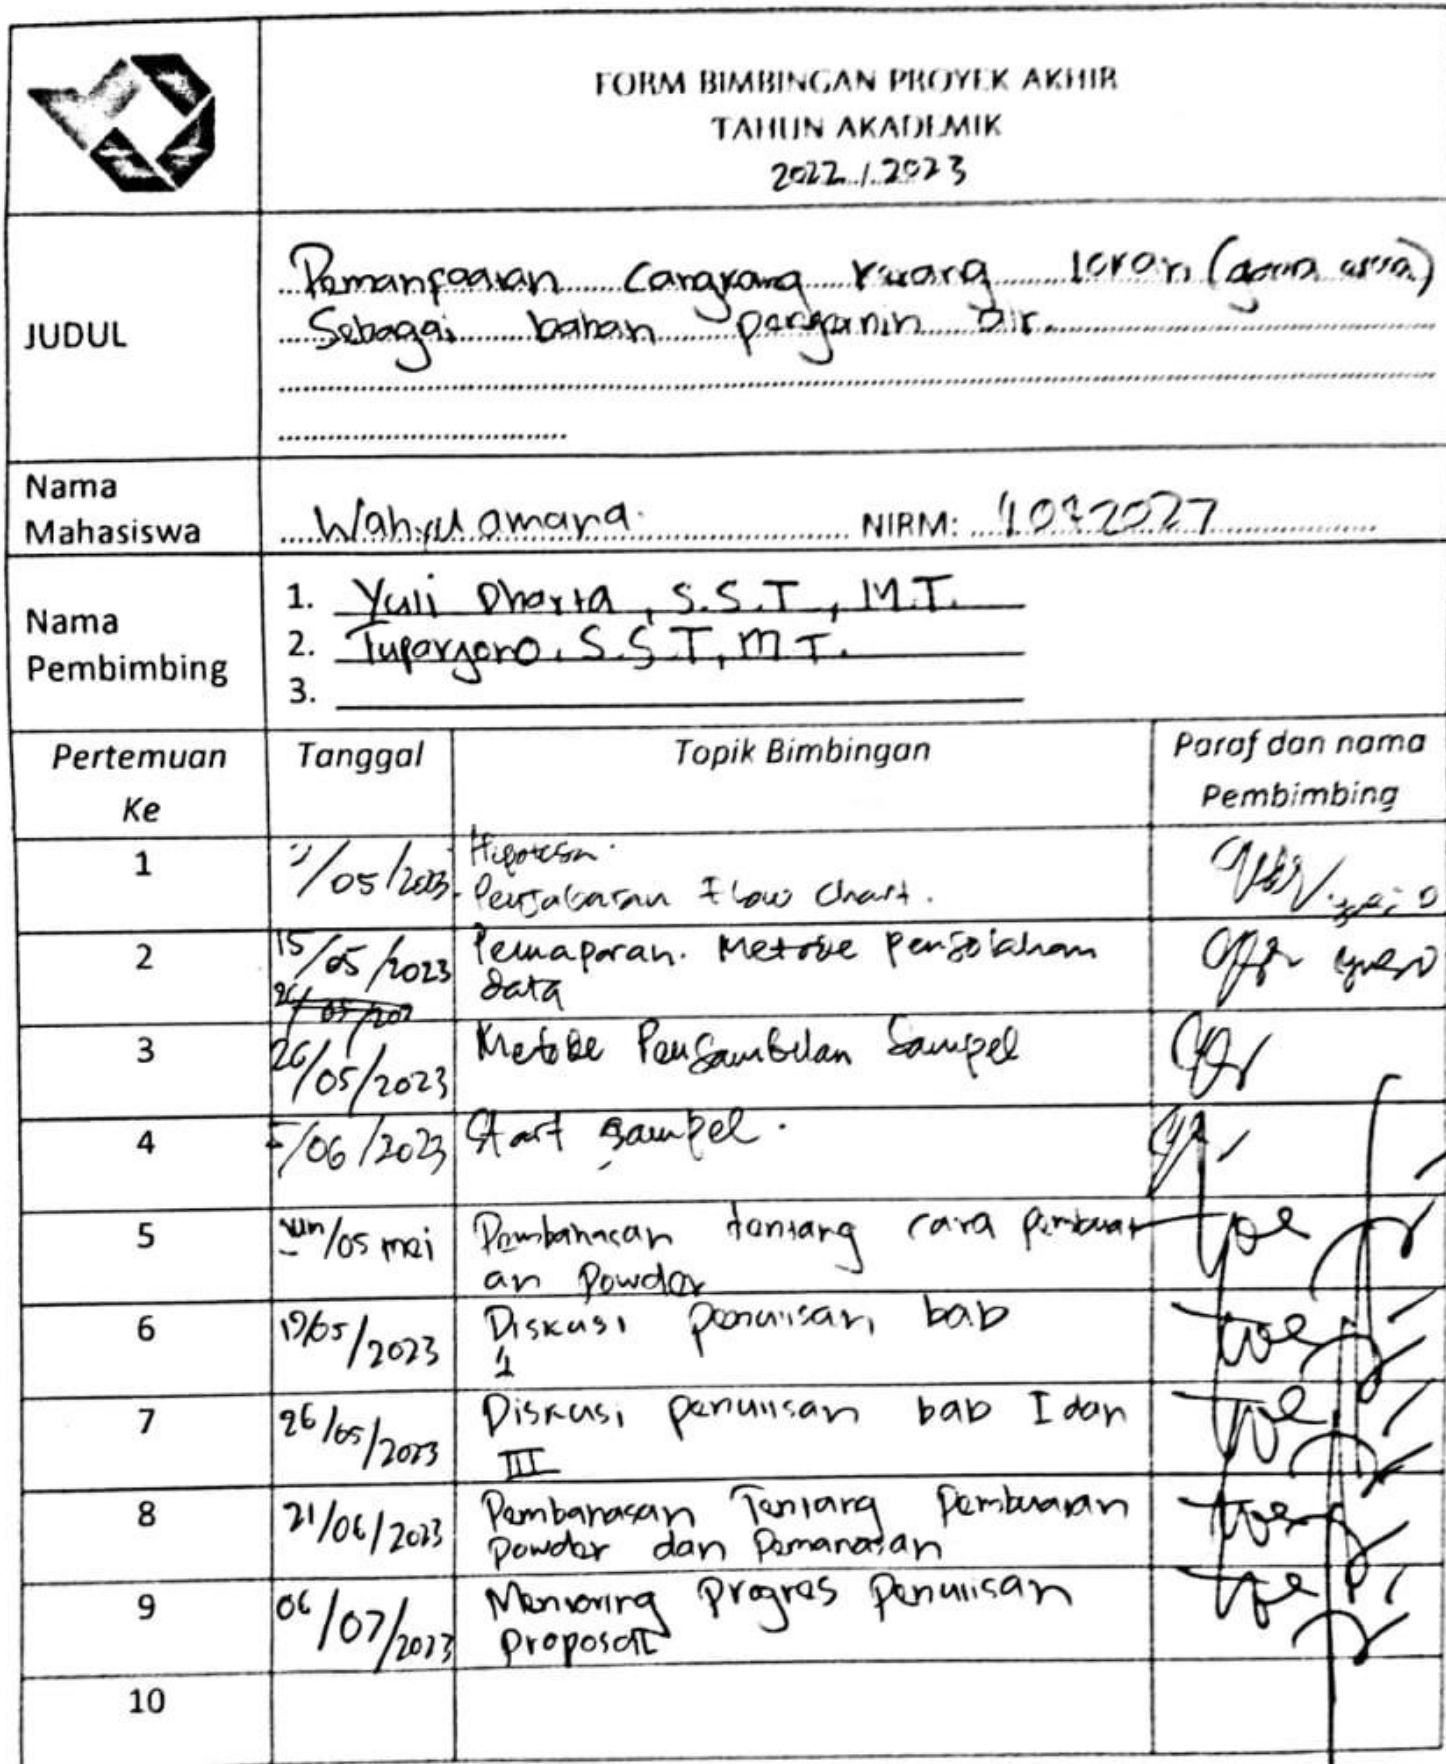 FORM BIMBINGAN PROYEK AKHIR
TAHUN AKADEMIK
2022/2023
JUDUL
Pemanfaatan Cangkang Kerang loran
Sebagai bahan air.
Nama
Mahasiswa
Wahyu amara. NIRM: 1072027
Nama
Pembimbing
1. Yuli Dharta, S.S.T, M.T.
2. Tuparjono, S.S.T, M.T.
3.
Pertemuan
Ke
Tanggal
Topik Bimbingan
Paraf dan nama
Pembimbing
1
/05/2023
Hipotesa.
Penjabaran Flow Chart.
2
15/05/2023
Pemaparan. Metode pengolahan
data
3
26/05/2023
Metode Pengambilan Sampel
4
/06/2023
Start sampel.
5
/05 mei
Pembahasan tentang cara pembuat
an Powder
6
19/05/2023
Diskusi penulisan bab
1
7
26/05/2023
Diskusi penulisan bab I dan
III
8
21/06/2023
Pembahasan Tentang Pembuatan
powder dan Pemanasan
9
06/07/2023
Progres Penulisan
Proposal
10